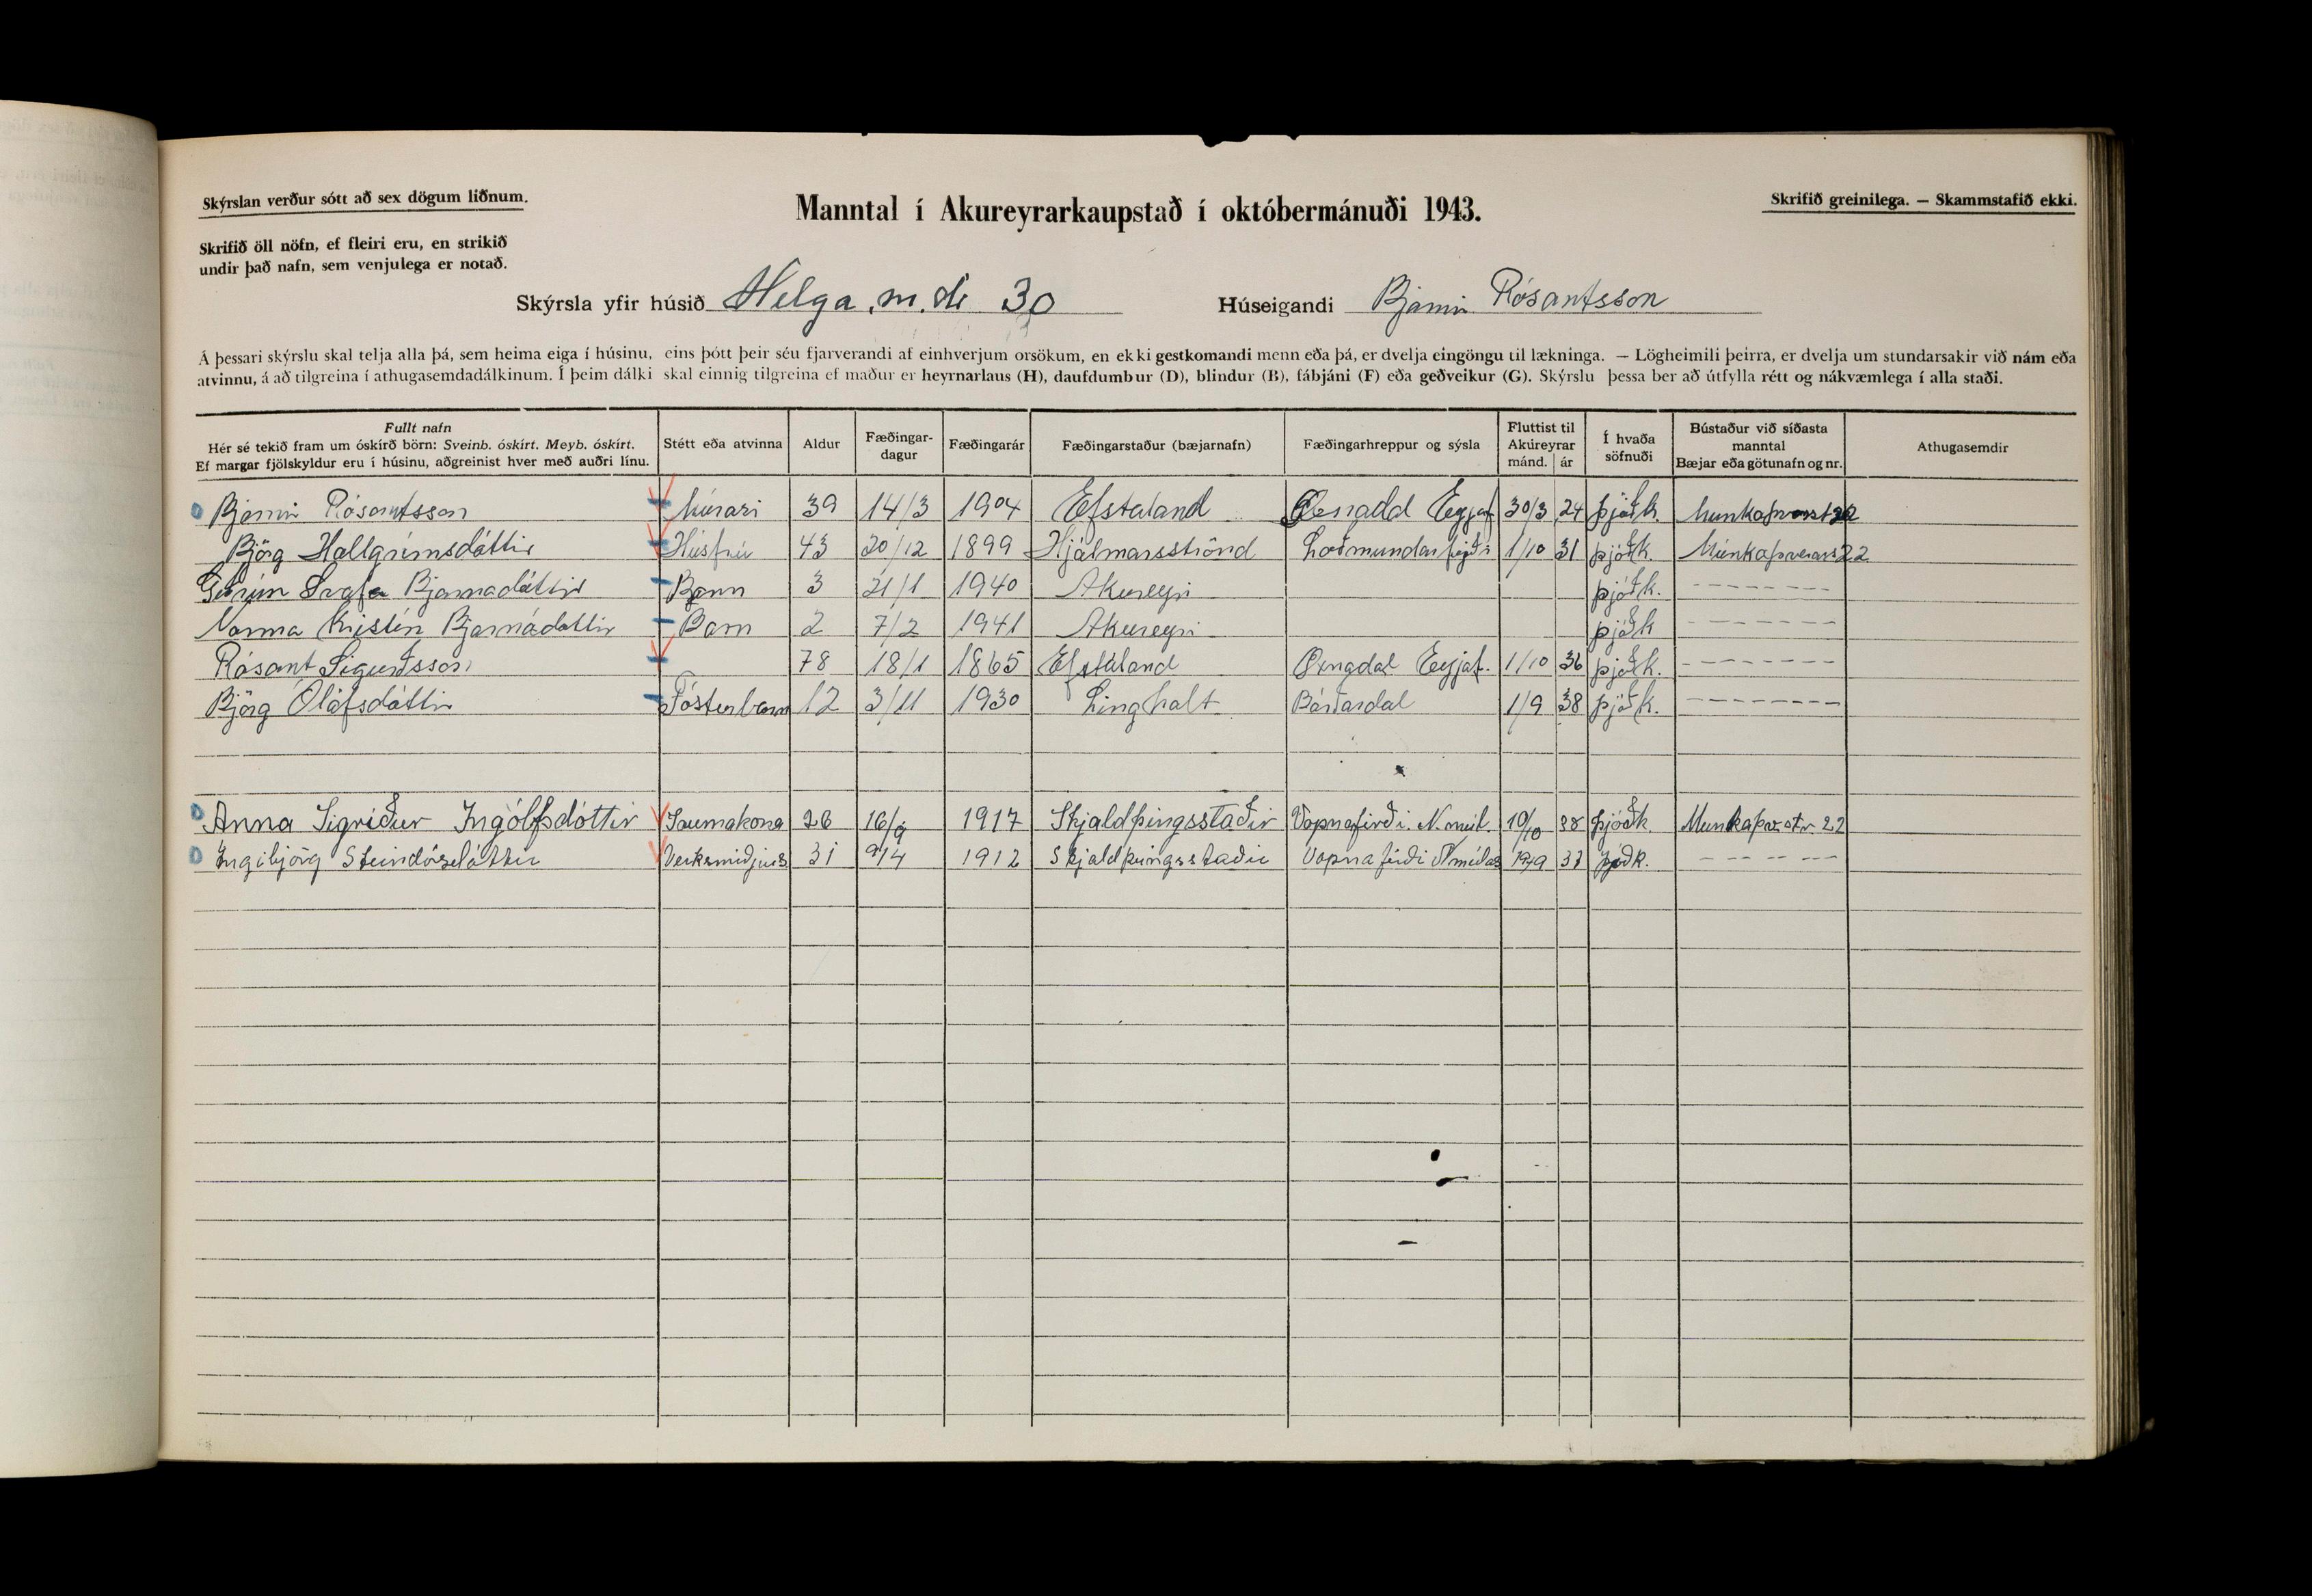 Skýrslan verður sótt að sex dögum liðnum.
Manntal í Akureyrarkaupstað í októbermánuði 1943.
Skrifið greinilega. — Skammstafið ekki.
Skrifið öll nöfn, ef fleiri eru, en strikið
undir það nafn, sem venjulega er notað.
Skýrsla yfir húsið Helga.m.str 30 Húseigandi Bjarni Rósantsson
Á þessari skýrslu skal telja alla þá, sem heima eiga í húsinu, eins þótt þeir séu fjarverandi af einhverjum orsökum, en ekki gestkomandi menn eða þá, er dvelja eingöngu til lækninga. — Lögheimili þeirra, er dvelja um stundarsakir við nám eða
atvinnu, á að tilgreina í athugasemdadálkinum. Í þeim dálki skal einnig tilgreina ef maður er heyrnarlaus (H), daufdumbur (D), blindur (B), fábjáni (F) eða geðveikur (G). Skýrslu þessa ber að útfylla rétt og nákvæmlega í alla staði.
Fullt nafn
Hér sé tekið fram um óskírð börn: Sveinb. óskírt. Meyb. óskírt.
Ef margar fjölskyldur eru í húsinu, aðgreinist hver með auðri línu.
Stétt eða atvinna
Aldur
Fæðingar-
dagur
Fæðingarár
Fæðingarstaður (bæjarnafn)
Fæðingarhreppur og sýsla
Fluttist til
Akureyrar
mánd. ár
Í hvaða
söfnuði
Bústaður við síðasta
manntal
Bæjar eða götunafn og nr.
Athugasemdir
Bjarni Rósantsson Múrari 39 14/3 1904 Efstaland Öxnadal Eyjaf. 30/3 24 þjóðk.
Björg Hallgrímsdóttir Húsfrú 43 20/12 1899 Hjálmarsströnd Loðmundarfirði 1/10 31 þjóðk. 22
Guðrún Svafa Bjarnadóttir Barn 3 21/1 1940 Akureyri þjóðk. - - - - - - - -
Norma Kristín Bjarnadóttir Barn 2 7/2 1941 Akureyri þjóðk - - - - - - - -
Rósant Sigurðsson 78 18/1 1865 Efstaland Öxnadal Eyjaf. 1/10 36 þjóðk. - - - - - - - -
Björg Ólafsdóttir Fósturbarn 12 3/11 1930 Lingholt Bárðardal 1/9 38 þjóðk. - - - - - - - -
Anna Sigríður Ingólfsdóttir Saumakona 26 16/9 1917 Skjaldþingsstaðir Vopnafirði. N.múl. 10/10 38 þjóðk. Munkaþv.str 22
Ingibjörg Steindórsdóttir 31 9/4 1912 Skjaldþingsstaðir Vopnafirði 37 þjóðk. - - - - - -